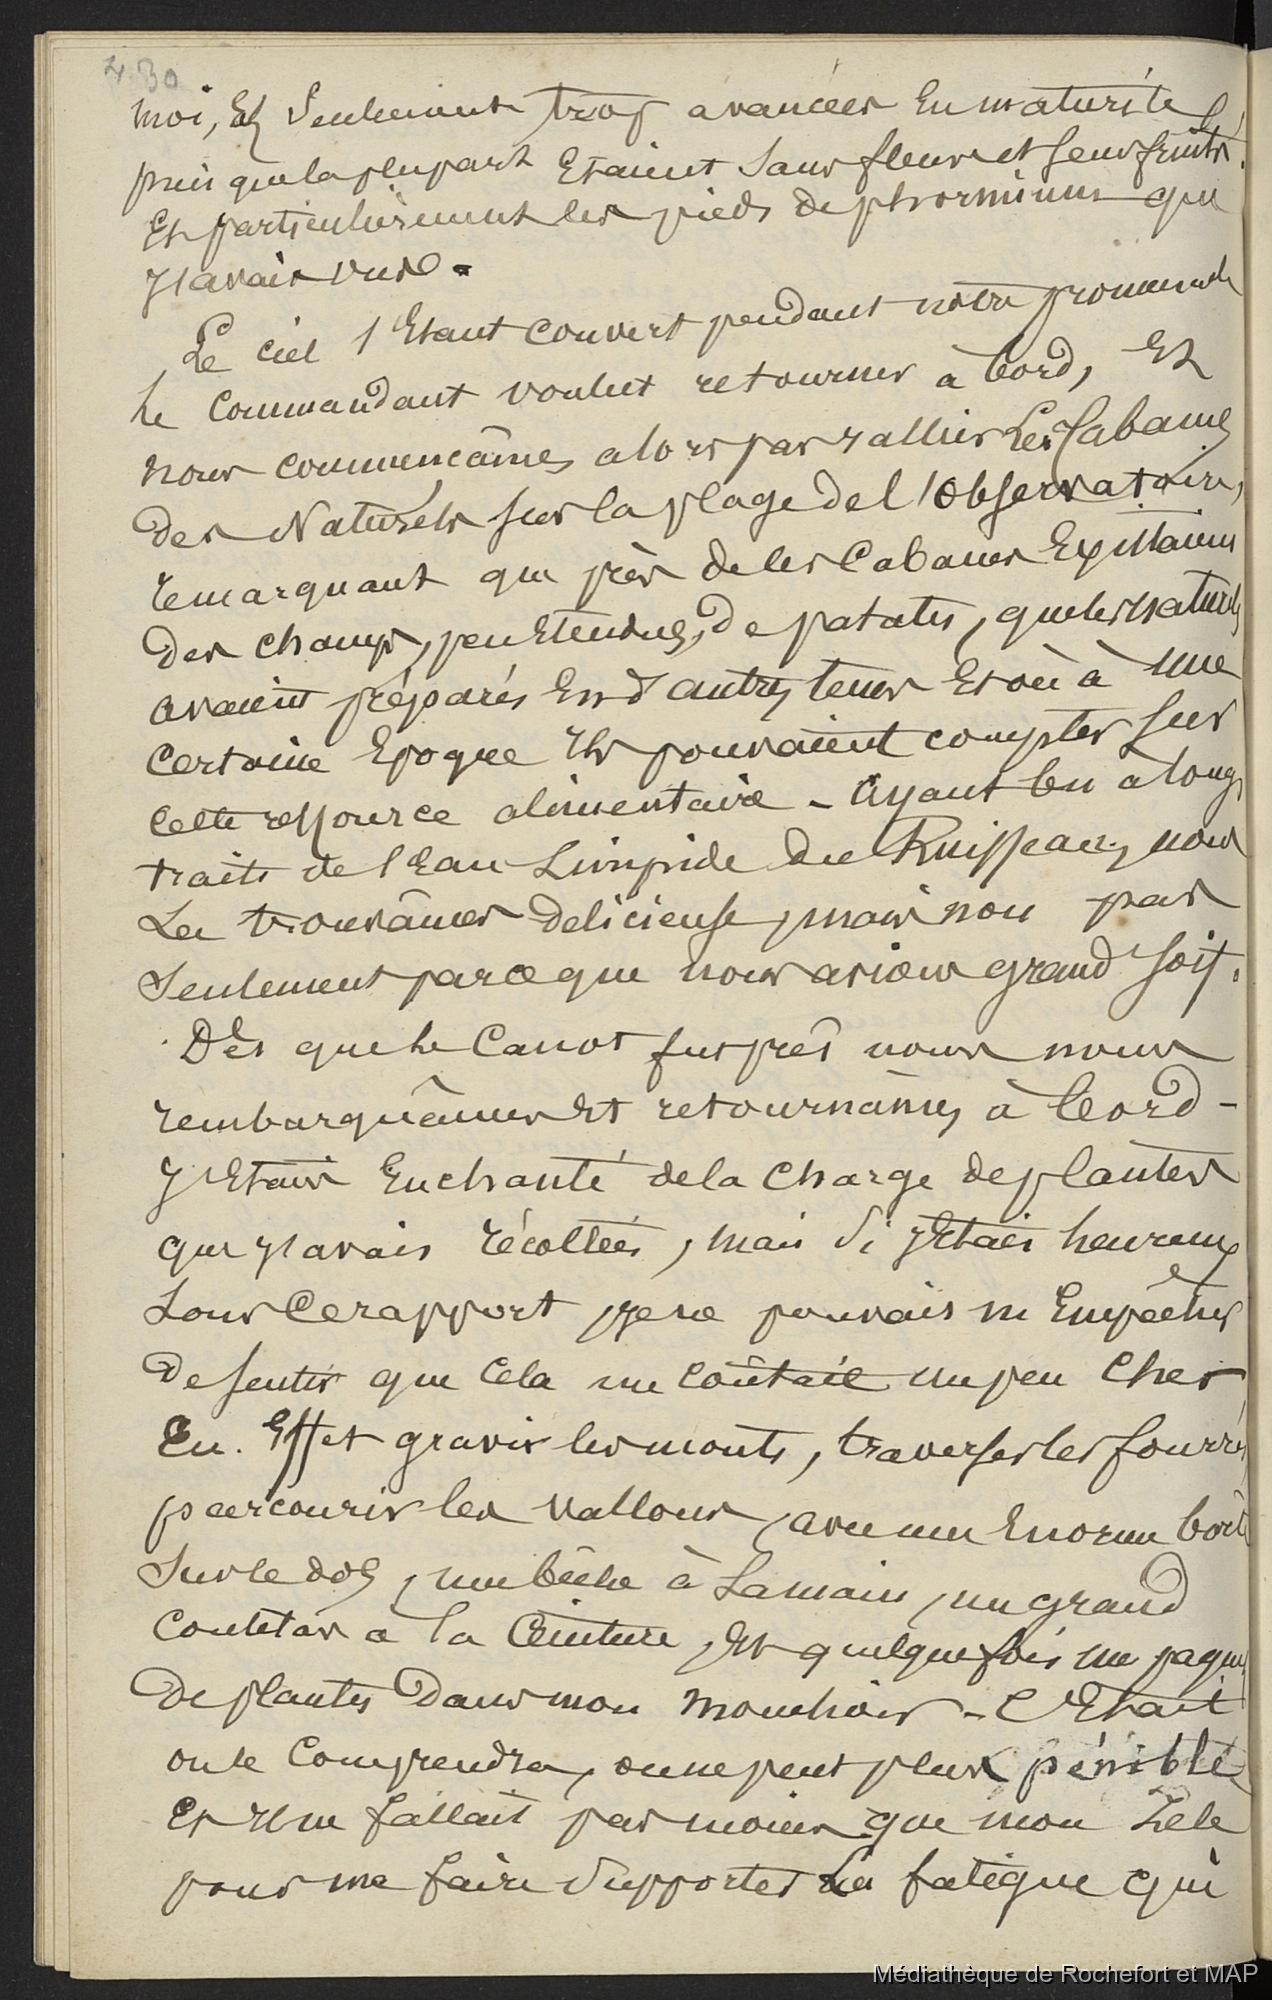 430
moi, Et Seulement trop avancées En maturité
puis que la plupart Etaient Sans fleurs et Sans fruits.
Et particulièrement les pieds de phormium que
J'avais vus.
Le ciel S'Etant couvert pendant notre promenade
le Commandant voulut retourner à bord, Et
nous commencâmes alors par rallier Les Cabanes
des Naturels sur la plage de l'Observatoire,
remarquant que près de les Cabanes Existaient
des champs, peu Etendues, de patates, que les Naturels
avaient préparés En d'autres tems Et où à une
certaine Epoque Ils pouvaient compter sur
cette ressource alimentaire - Ayant bu à longs
traits de l'Eau Limpide du Ruisseau, nous
La trouvâmes délicieuse, mais non pas
Seulement parce que nous avions grand Soif.
Dès que le Canot fut prêt nous nous
rembarquâmes Et retournâmes à bord -
J'Etais Enchanté de la charge de plantes
que J'avais récoltées, mais Si J'Etais heureux
Sous Ce rapport, je ne pouvais m'Empêcher
De Sentir que Cela me coûtait un peu Cher
En Effet gravir les monts, traverser les fourrés,
parcourir les vallons, avec une Enorme boite
Sur le dos, une bêche à La main, un grand
Coutelas a la Ceinture, Et quelquefois un paquet
De plantes Dans mon Mouchoir - C'Etait
on le Comprendra, on ne peut plus pénible
Et Il ne fallait pas moins que mon Zèle
pour me faire Supporter La fatigue qui
Médiathèque de Rochefort et MAP